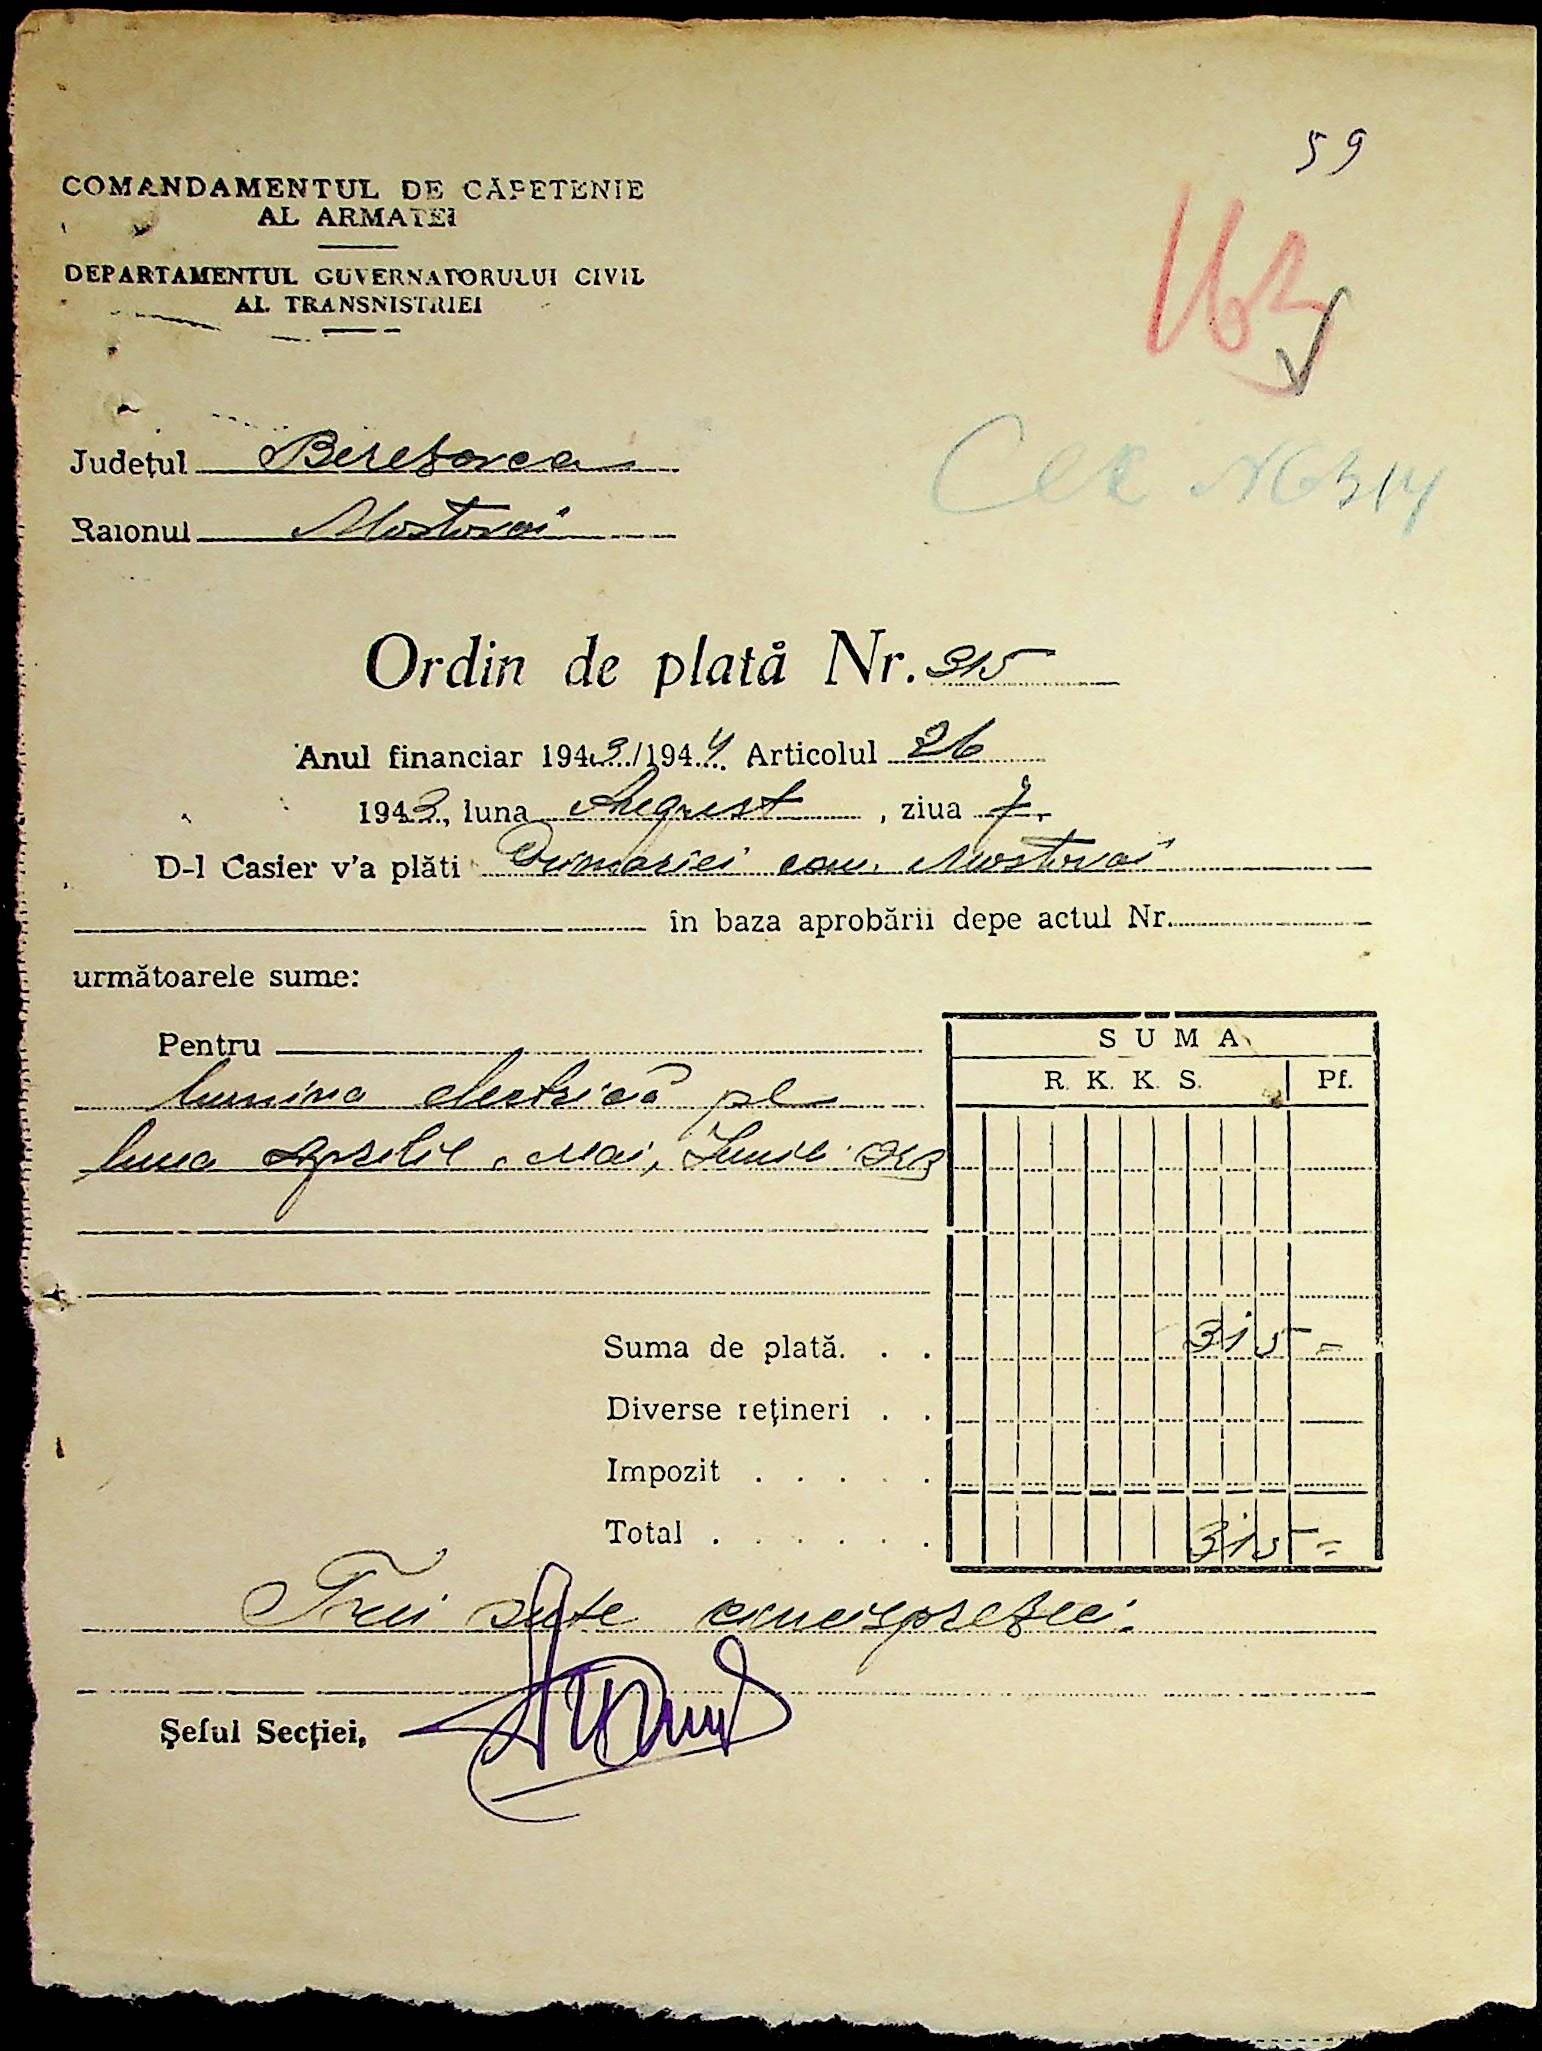 59
COMANDAMENTUL DE CĂPETENIE
AL ARMATEI
DEPARTAMENTUL GUVERNATORULUI CIVIL
AL TRANSNISTRIEI
163
Județul Berezovca
Raionul Mostovoi
Ordin de plată Nr. 315
Anul financiar 1943/1944 Articolul 26
1943, luna August, ziua 7.
D-l Casier v'a plăti Primăriei com. Mostovoi
în baza aprobării depe actul Nr.
următoarele sume:
Pentru
lumina electrică pe
luna Aprilie, Mai, Iunie 943
SUMA
R. K. K. S. Pf.
Suma de plată. . . 315 =
Diverse rețineri . .
Impozit . . . . .
Total . . . . . . 315 =
Trei sute cincisprezeci.
Șeful Secției,